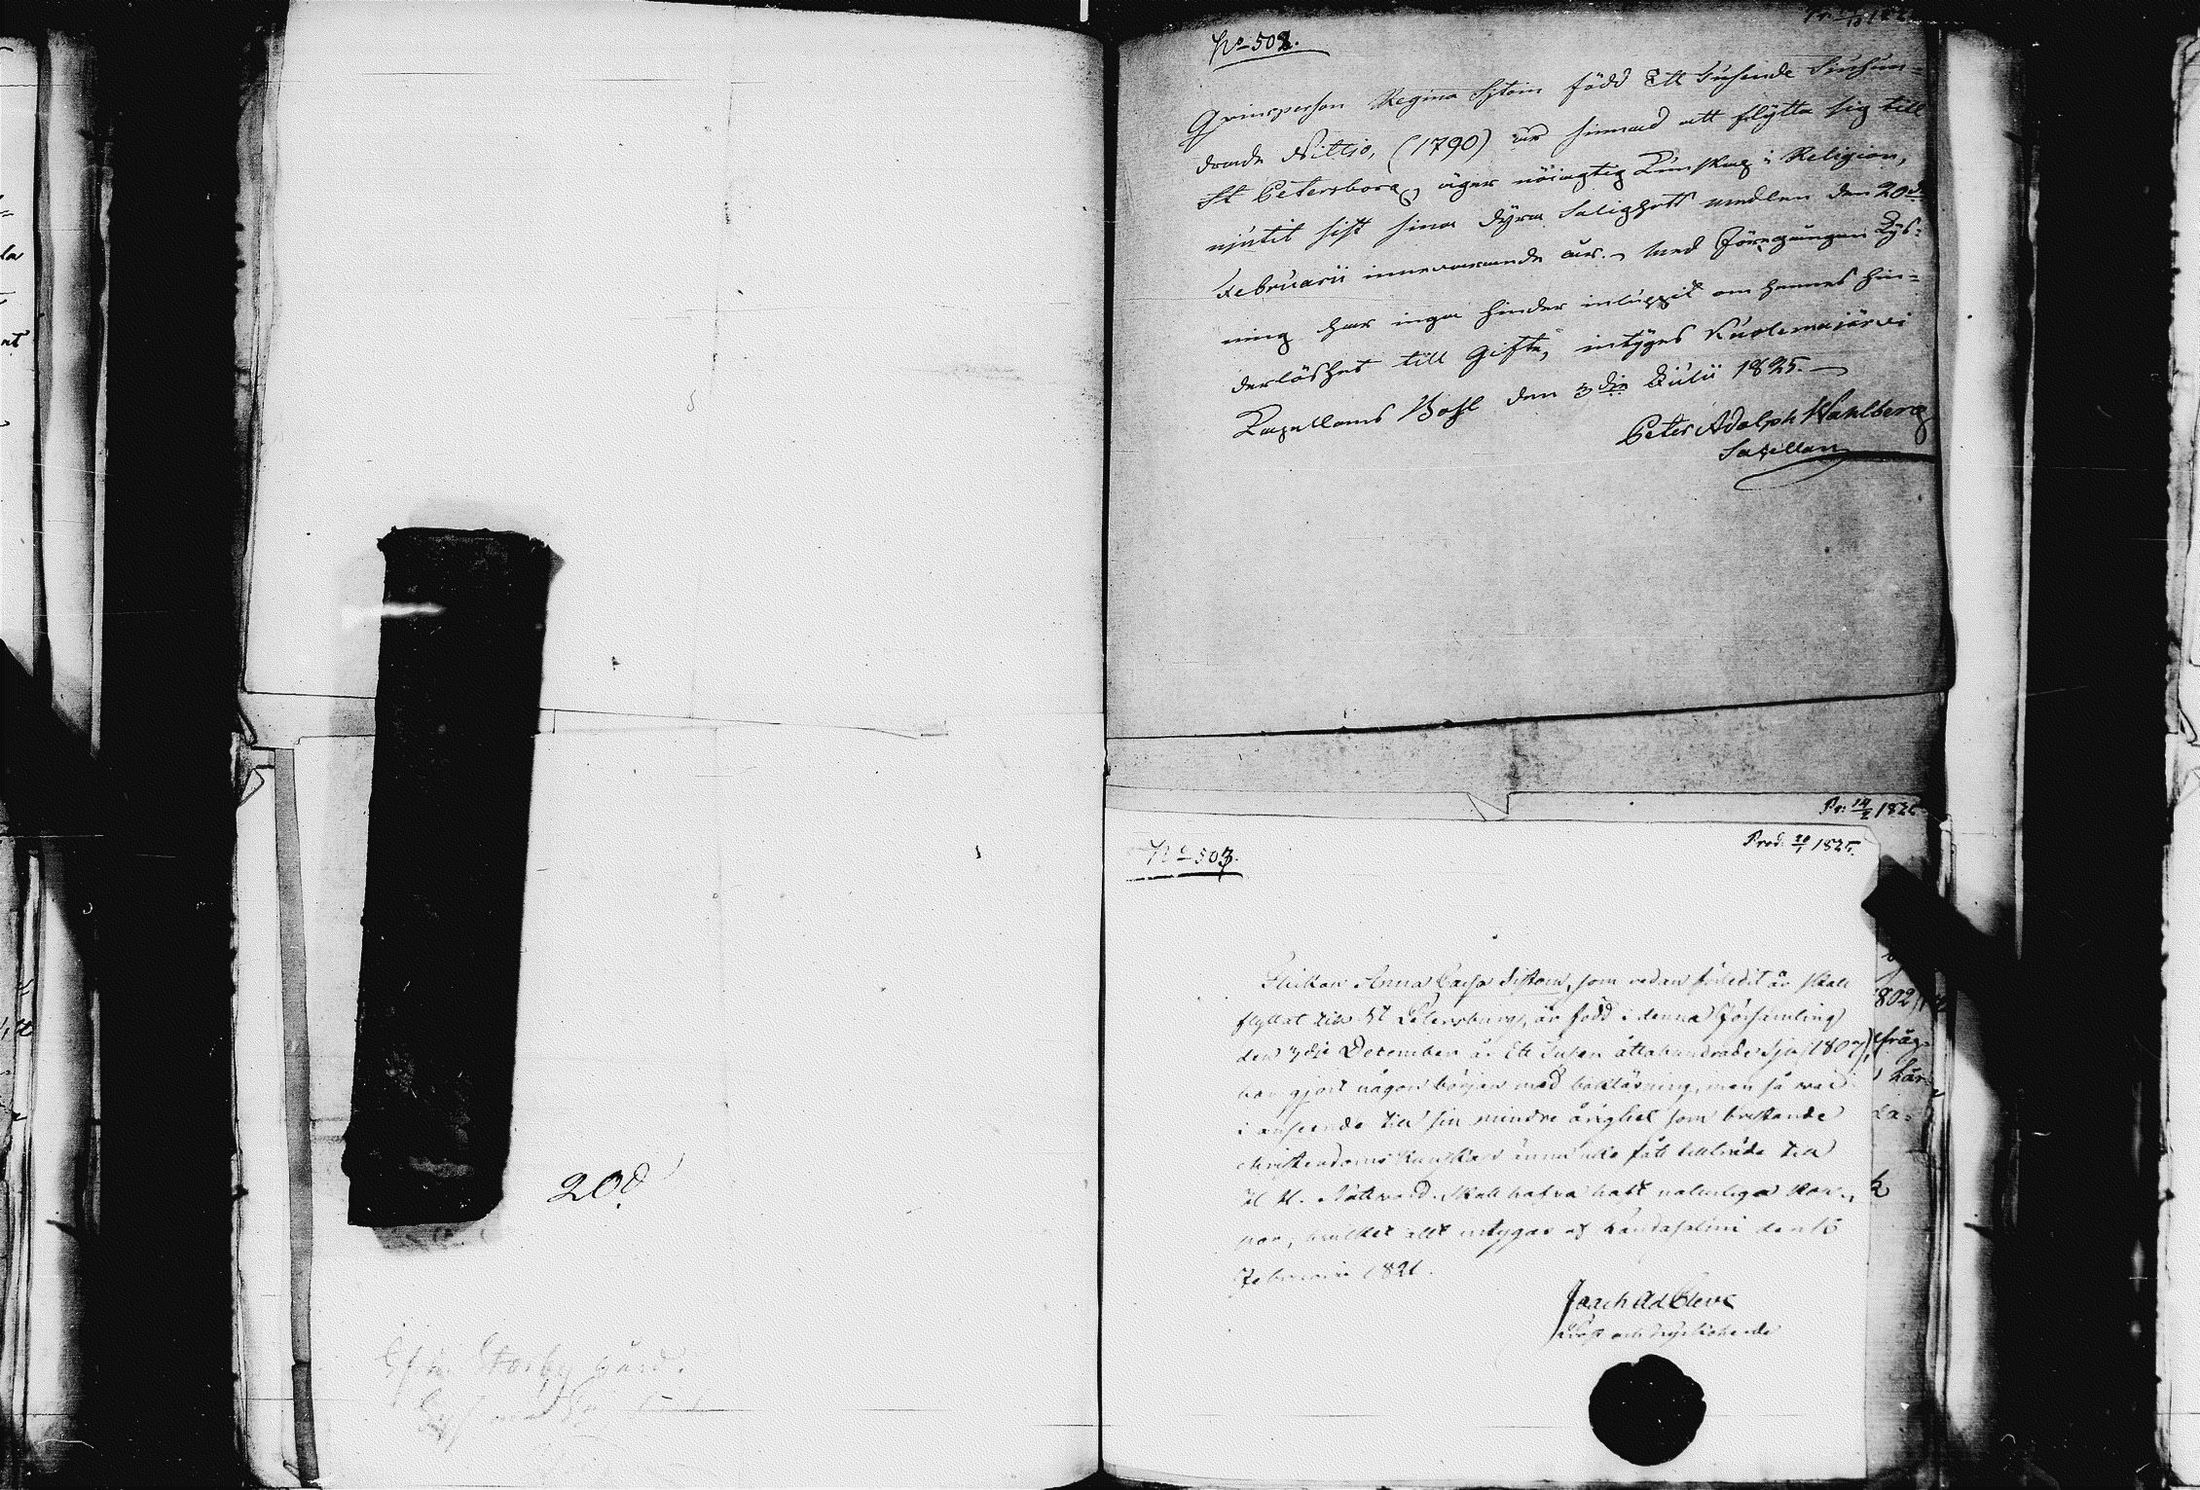 No 502.
Qvinsperson Regina Sjtoin född Ett Tusende Siuhun-
drade Nittio, (1790) är sinnad att flytta sig till
St Petersborg, äger nöiagtig Kunskap i Religion,
njutit sist sina dyra Salighets medlen den 20de
Februarii innevarande år. Med föregången Lys-
ning har inga hinder inluppit om hennes hin-
derlöshet till Gifte, intyges Kuolemajärvi
Capellans Bohl den 3die Julii 1825.
Peter Adolph Wahlberg
Sacellan
Pr: 14/2 1826
No 503.
Prod: 1825.
Flickan Anna Caisa, som redan förledit år skall
flyttat till St Petersburg, är född i denna Församling
den 3die December år Ett Tusen åttahundrade sju (1807),
har gjort någon början med bokläsning, men så wäl
i anseende till sin mindre årighet som bristande
christendoms kunskap ännu icke fått tillträde till
H. H. Nattward. Skall hafva haft naturliga kop-
por, hvilket allt intygas af den 16
Februarii 1821.
Joach Ad Cleve
200
Storby gård.